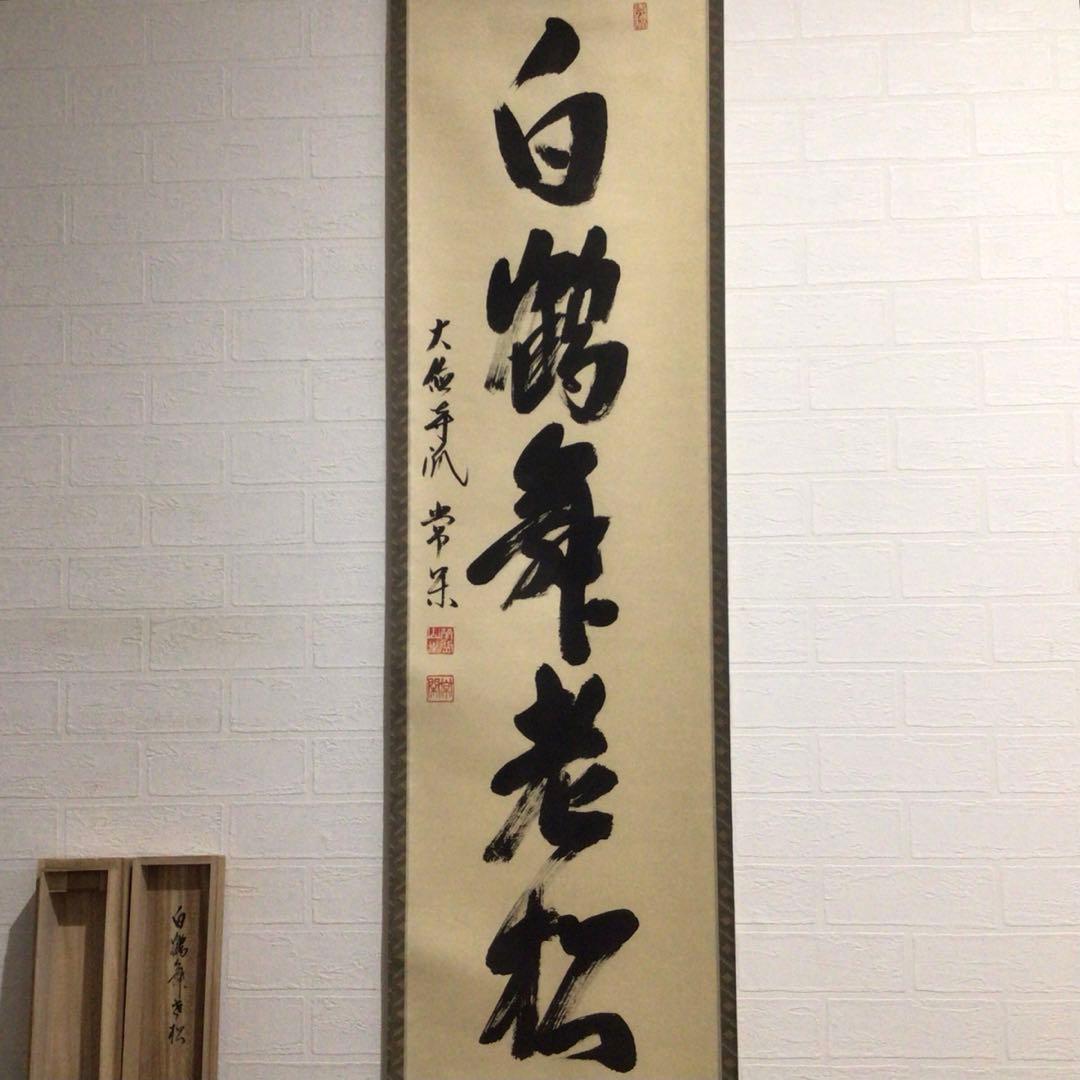 白鶴舞老松
大徳寺派 常杲
白鶴舞老松